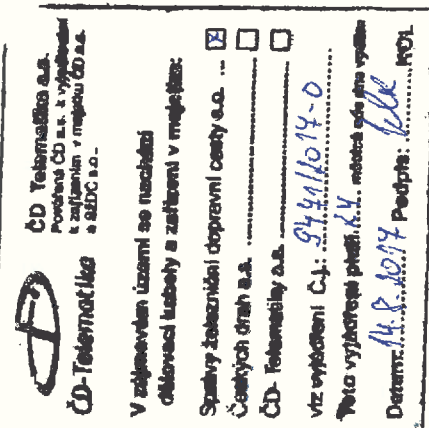 ČD-Telematika
ČD Telematika a.s.
Pověřená ČD a.s. k vyjadřování
k zařízením v majetku ČD a.s.
a SŽDC s.o.
V zájmovém území se nachází
sdělovací kabely a zařízení v majetku:
Správy železniční dopravní cesty s.o. ... x
Českých drah a.s. ...
ČD- Telematiky a.s. ...
viz vyjádření Č.j.: 9471/2017-O
Toto vyjádření platí 24 měsíců ode dne vydání
Datum: 14.8.2017 Podpis: ROL